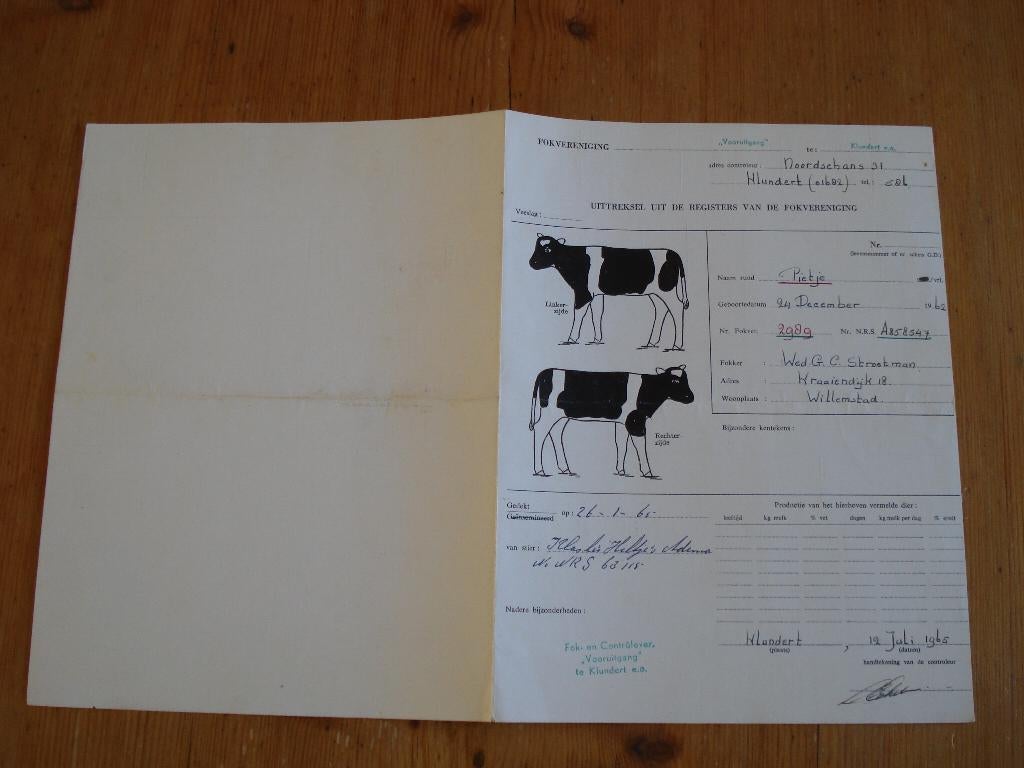 FOKVERENIGING „Vooruitgang" te: Klundert e.o.
adres controleur: Noordschans 91
Klundert (01682) tel.: 506
UITTREKSEL UIT DE REGISTERS VAN DE FOKVERENIGING
Verslag:
Nr.
(levensnummer of nr. schets G.D.)
Naam rund Pietje /vrl.
Geboortedatum 24 December 1962
Nr. Fokver. 2989 Nr. N.R.S. A858547
Fokker : Wed G. C. Strootman
Adres : Kraaiendijk 18
Woonplaats : Willemstad
Linker-
zijde
Rechter-
zijde
Bijzondere kentekens:
Gedekt
Geïnsemineerd op: 26-1-65
van stier: Klaske Hiltje's Adema
Nr NRS 63115
Nadere bijzonderheden:
Productie van het hierboven vermelde dier:
leeftijd kg melk % vet dagen kg melk per dag % eiwit
Fok- en Contrôlever.
„Vooruitgang"
te Klundert e.o.
Klundert, 12 Juli 1965
(plaats) (datum)
handtekening van de controleur